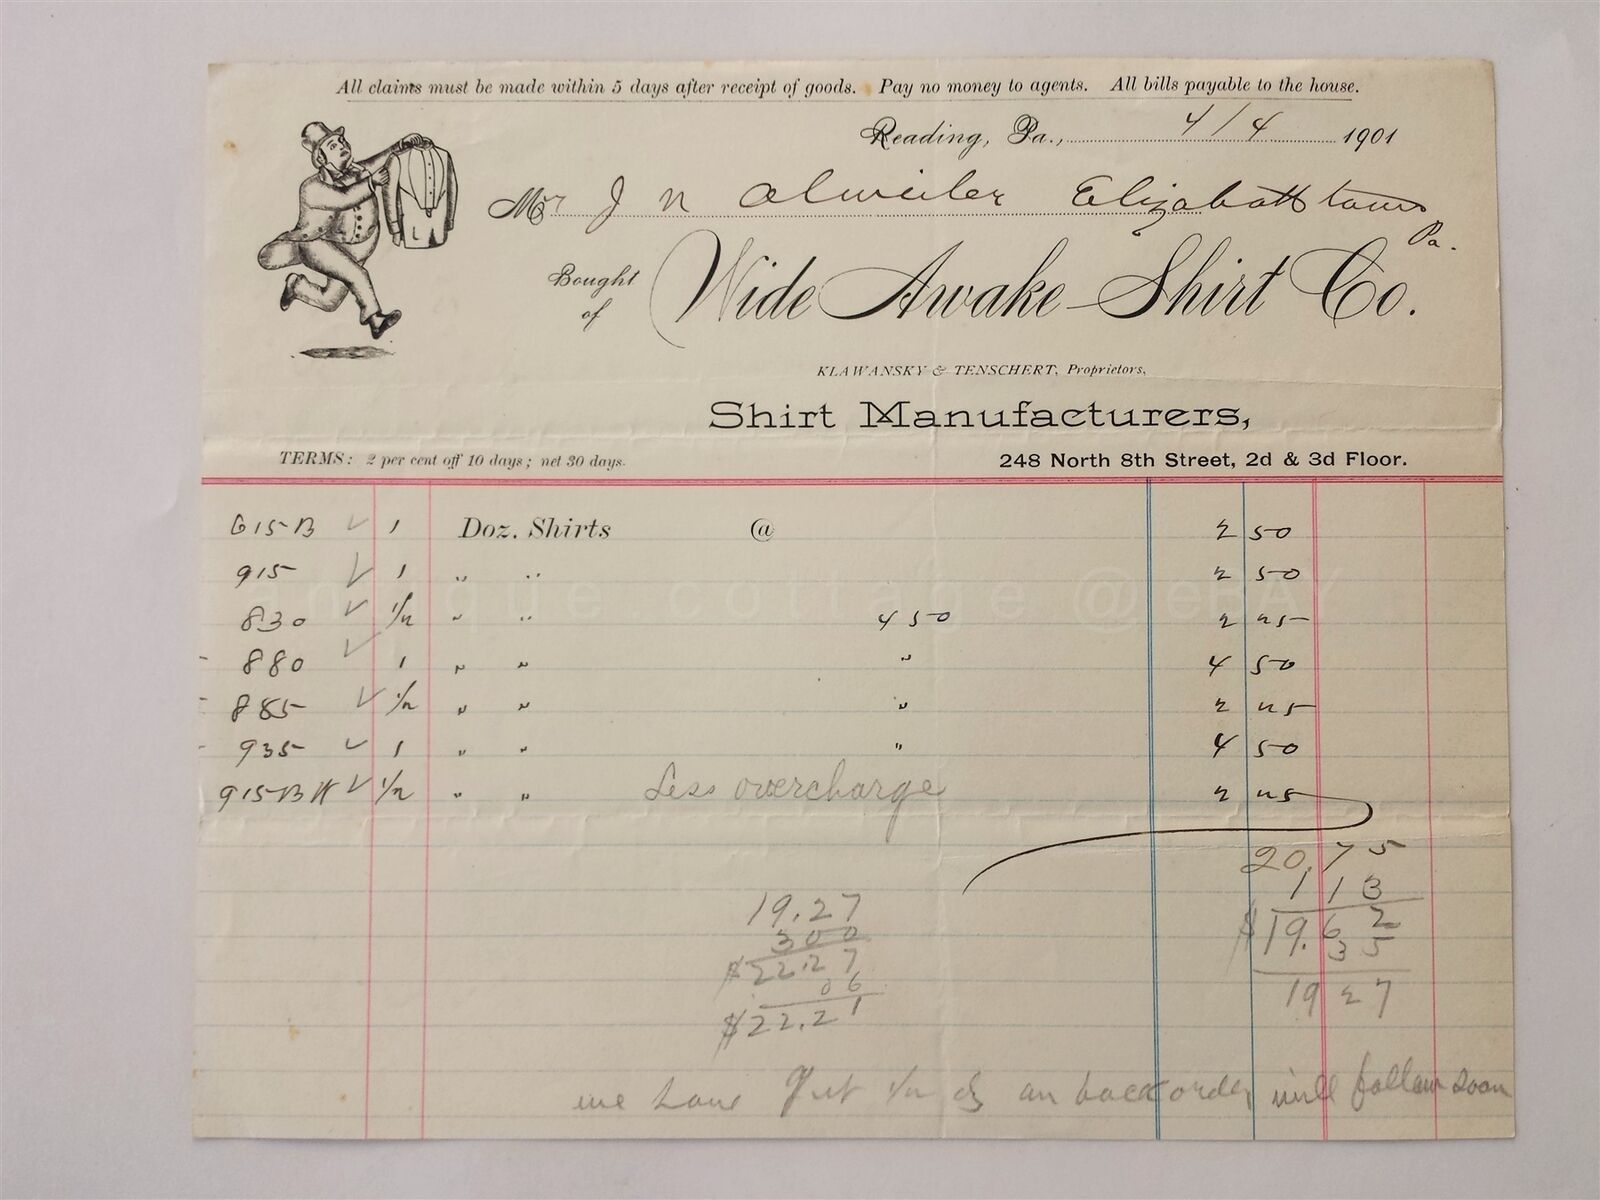 All claims must be made within 5 days after receipt of goods. Pay no money to agents. All bills payable to the house.
Reading, Pa., 4/4 1901
Mr J N Olweiler Elizabethtown
Pa.
Bought of Wide Awake Shirt Co.
KLAWANSKY & TENSCHERT, Proprietors,
Shirt Manufacturers,
TERMS: 2 per cent off 10 days; net 30 days. 248 North 8th Street, 2d & 3d Floor.
615-B ✓ 1 Doz. Shirts @ 2 50
915 ✓ 1 " " 2 50
antique cottage @ eBAY
830 ✓ 1/2 " " 4 50 2 25
- 880 ✓ 1 " " " 4 50
- 885 ✓ 1/2 " " " 2 25
- 935 ✓ 1 " " " 4 50
915-B ✓ 1/2 " " Less overcharge 2 25
20.75
1 13
$19.62
35
19 27
19.27
3 00
$22.27
06
$22.21
we have Put 1/2 dz on back order will follow soon